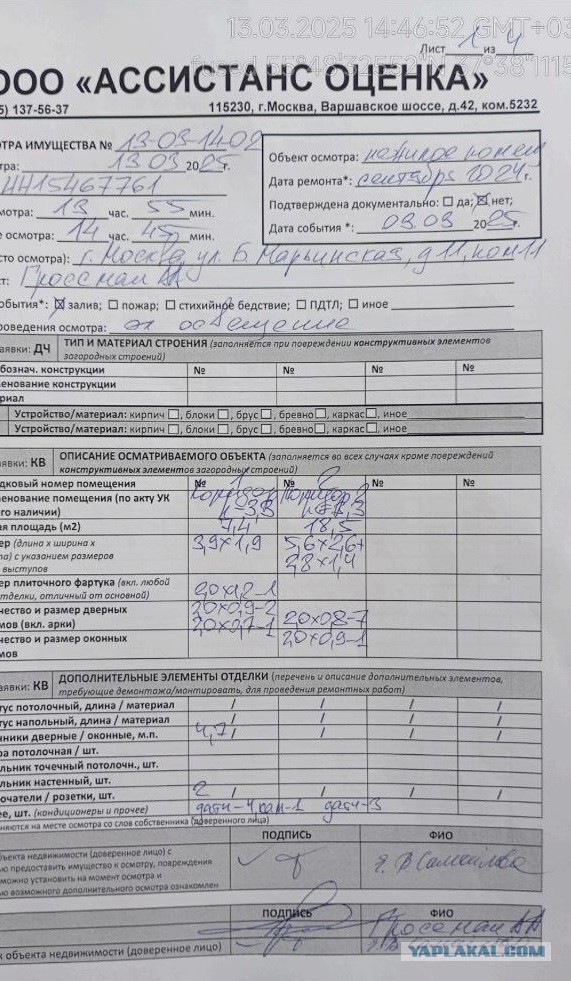 13.03.2025 14:46:52 GMT+03
Лист 1 из 4
ООО «АССИСТАНС ОЦЕНКА»
5) 137-56-37 115230, г.Москва, Варшавское шоссе, д.42, ком.5232
ОТРА ИМУЩЕСТВА № 13-03-1409
тра: 13 03 2025г.
НН15467761
мотра: 13 час. 55 мин.
е осмотра: 14 час. 45 мин.
Объект осмотра: нежилое помещ
Дата ремонта*: сентябрь 2024г.
Подтверждена документально: ☐ да; ☒ нет;
Дата события *: 09.03 2025г.
сто осмотра): г. Москва, ул. Б. Марьинская, д 11, пом 11
т: Гроссман АА
обытия*: ☒ залив; ☐ пожар; ☐ стихийное бедствие; ☐ ПДТЛ; ☐ иное
роведения осмотра: эл освещение
аявки: ДЧ ТИП И МАТЕРИАЛ СТРОЕНИЯ (заполняется при повреждении конструктивных элементов
загородных строений)
бознач. конструкции № № № №
менование конструкции
ериал
Устройство/материал: кирпич ☐, блоки ☐, брус ☐, бревно ☐, каркас ☐, иное
Устройство/материал: кирпич ☐, блоки ☐, брус ☐, бревно ☐, каркас ☐, иное
аявки: КВ ОПИСАНИЕ ОСМАТРИВАЕМОГО ОБЪЕКТА (заполняется во всех случаях кроме повреждений
конструктивных элементов загородных строений)
дковый номер помещения № 1 № 2 № №
менование помещения (по акту УК Коридор Коридор 2
го наличии) h=3,3 h=3,3
ая площадь (м2) 7,4 18,5
ер (длина х ширина х 3,9х1,9 5,6х2,6+
та) с указанием размеров 2,8х1,4
выступов
ер плиточного фартука (вкл. любой
тделки, отличный от основной) 2,0х1,2-1
чество и размер дверных 2,0х0,9-2
мов (вкл. арки) 2,0х0,7-1 2,0х0,8-7
чество и размер оконных 2,0х0,9-1
мов
аявки: КВ ДОПОЛНИТЕЛЬНЫЕ ЭЛЕМЕНТЫ ОТДЕЛКИ (перечень и описание дополнительных элементов,
требующие демонтажа/монтировать, для проведения ремонтных работ)
тус потолочный, длина / материал / / / /
тус напольный, длина / материал / / / /
чники дверные / оконные, м.п. 4,7/ / / /
ра потолочная / шт.
льник точечный потолочн., шт.
льник настенный, шт.
ючатели / розетки, шт. 2 / / / /
ее, шт. (кондиционеры и прочее) датч-4, кам-1 датч-3
няются на месте осмотра со слов собственника (доверенного лица)
ПОДПИСЬ ФИО
бъекта недвижимости (доверенное лицо) с
ью предоставить имущество к осмотру, повреждения
можно установить на момент осмотра и
ью возможного дополнительного осмотра ознакомлен
Самойлова
ПОДПИСЬ ФИО
Гроссман АА
к объекта недвижимости (доверенное лицо)
YAPLAKAL.COM